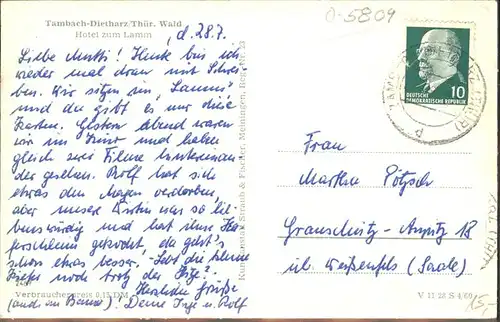 Tambach-Dietharz/Thür. Wald
Hotel zum Lamm
d. 28.7.
Liebe Mutti! Heute bin ich
wieder mal dran mit Schrei-
ben. Wir sitzen im "Lamm"
und da gibt es nur diese
Karten. Gestern abend waren
wir im Kino und haben
gleich zwei Filme hintereinan-
der gesehen. Rolf hat sich
etwas den Magen verdorben,
aber unsere Wirtin war so lie-
benswürdig und hat ihm Ha-
ferschleim gekocht, da geht's
schon etwas besser. Lebt die kleine
noch trotz der Hitze?
Herzliche Grüße
(auch an Banne)! Deine Inge u. Rolf
Verbraucherpreis 0,15 DM
Kunstanstalt Straub & Fischer, Meiningen, Reg.-Nr. 23
o-5809
10
DEUTSCHE
DEMOKRATISCHE REPUBLIK
Frau
Martha Pötzsch
Granschütz-Aupitz 18
üb. Weißenfels (Saale)
V 11 28 S 4/69
15,-